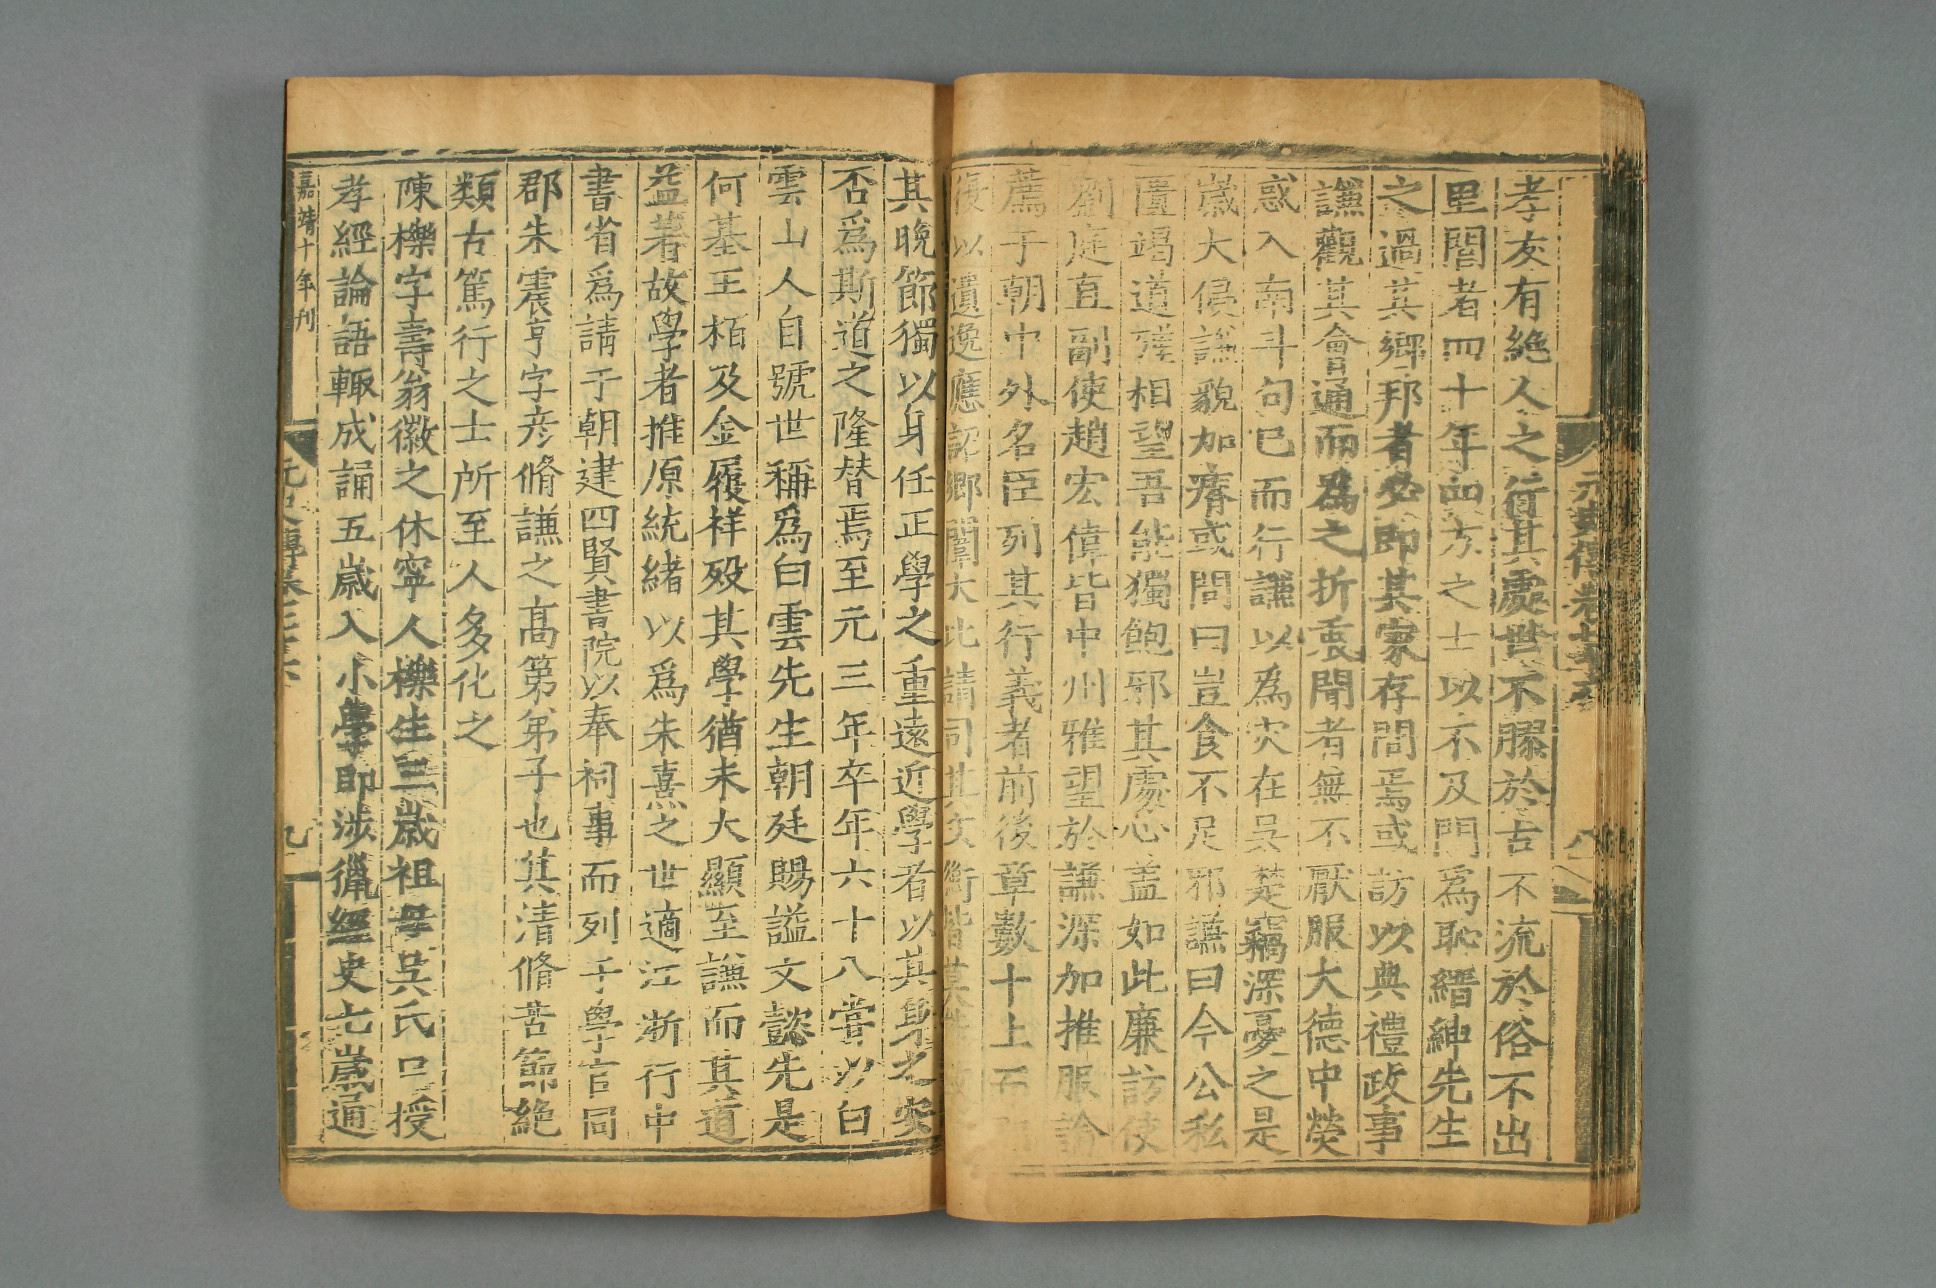 孝友有絶人之行其處世不膠於古不流於俗不出
里閭者四十年四方之士以不及門爲恥縉紳先生
之過其鄉邦者必即其家存問焉或訪以典禮政事
謙觀其會通而爲之折衷聞者無不厭服大德中熒
惑入南斗句已而行謙以為灾在吳楚竊深憂之是
歳大侵謙貌加瘠或問曰豈食不足邪謙曰今公私
匱竭道殣相望吾能獨飽邪其處心盖如此廉訪使
劉庭直副使趙宏偉皆中州雅望於謙深加推服論
薦于朝中外名臣列其行義者前後章數十上而郡
復以遺逸應詔鄉闈大比請司其文衡皆莫能致
其晚節獨以身任正學之重遠近學者以其身之安
否爲斯道之隆替焉至元三年卒年六十八嘗以白
雲山人自號世稱爲白雲先生朝廷賜諡文懿先是
何基王栢及金履祥殁其學猶未大顯至謙而其道
益著故學者推原統緒以爲朱熹之世適江浙行中
書省爲請于朝建四賢書院以奉祠事而列于學官同
郡朱震亨字彦脩謙之髙第弟子也其清脩苦節絶
類古篤行之士所至人多化之
陳櫟字壽翁徽之休寧人櫟生三歳祖母吳氏口授
孝經論語輙成誦五歳入小學即涉獵經史七歳通
嘉靖十年刊
九